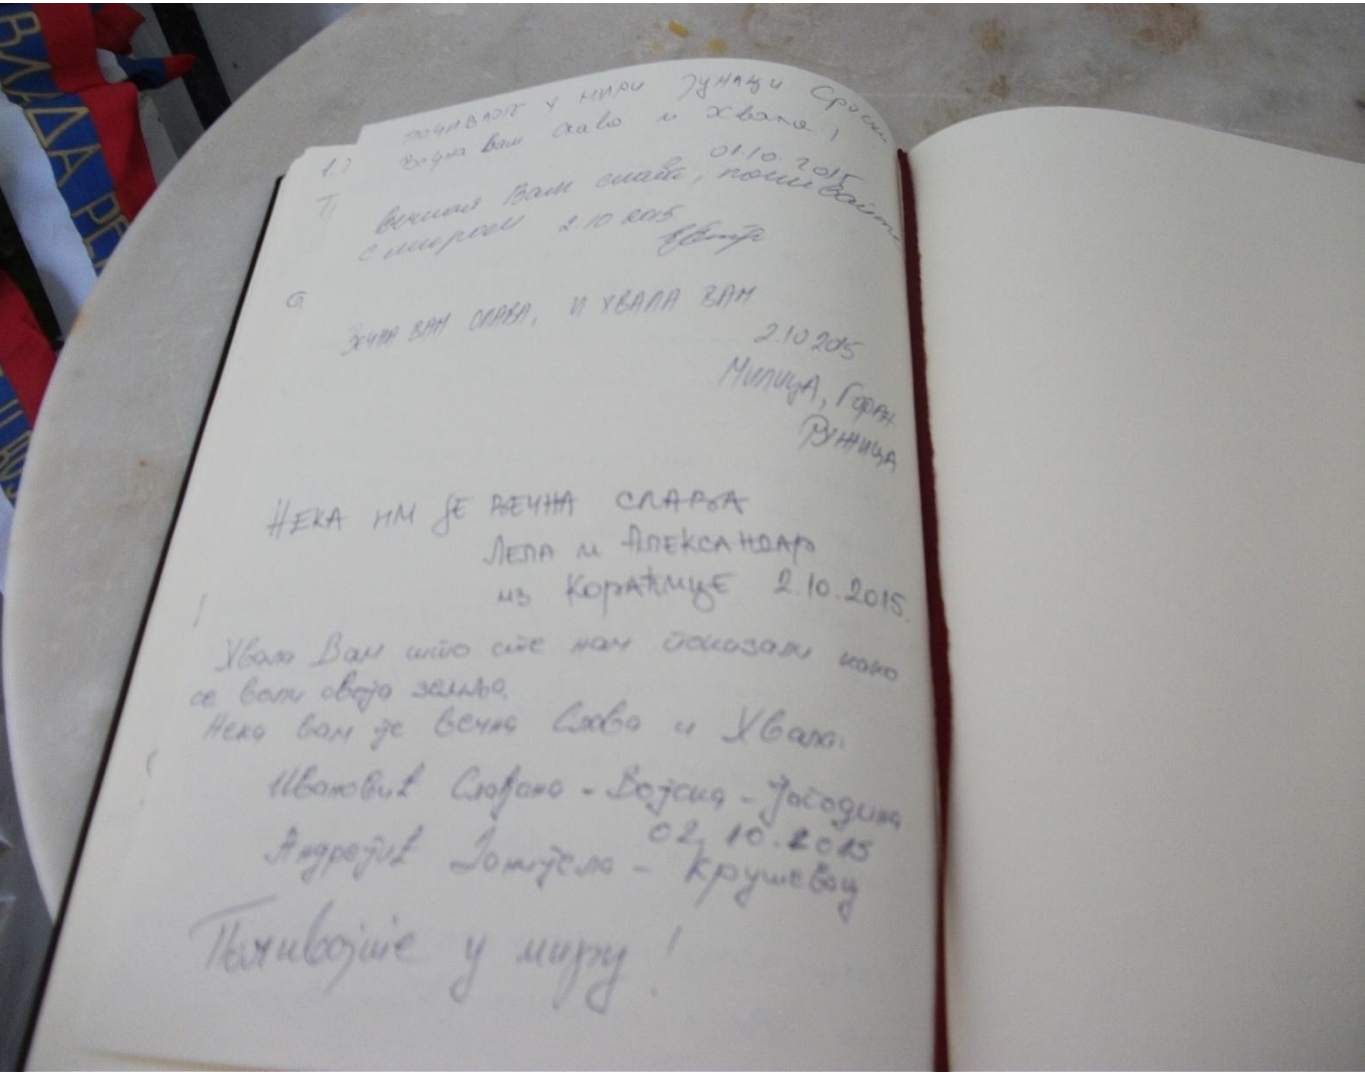 ВЛАДА РЕ
почивајте у миру јунаци Српски
Вечна вам слава и хвала!
01.10.2015
Вечная Вам слава, почивайте
с миром 2.10.2015
ВЕЧНА ВАМ СЛАВА, И ХВАЛА ВАМ
2.10.2015
Милица, Горан
Ружица
НЕКА ИМ ЈЕ ВЕЧНА СЛАВА
ЛЕПА и АЛЕКСАНДАР
из КОРАЋИЦЕ 2.10.2015.
Хвала Вам што сте нам показали како
се воли своја земља.
Нека вам је вечна Слава и Хвала.
Ивановић Слађана - Војска - Јагодина
02.10.2015
Андрејић - Крушевац
Почивајте у миру!